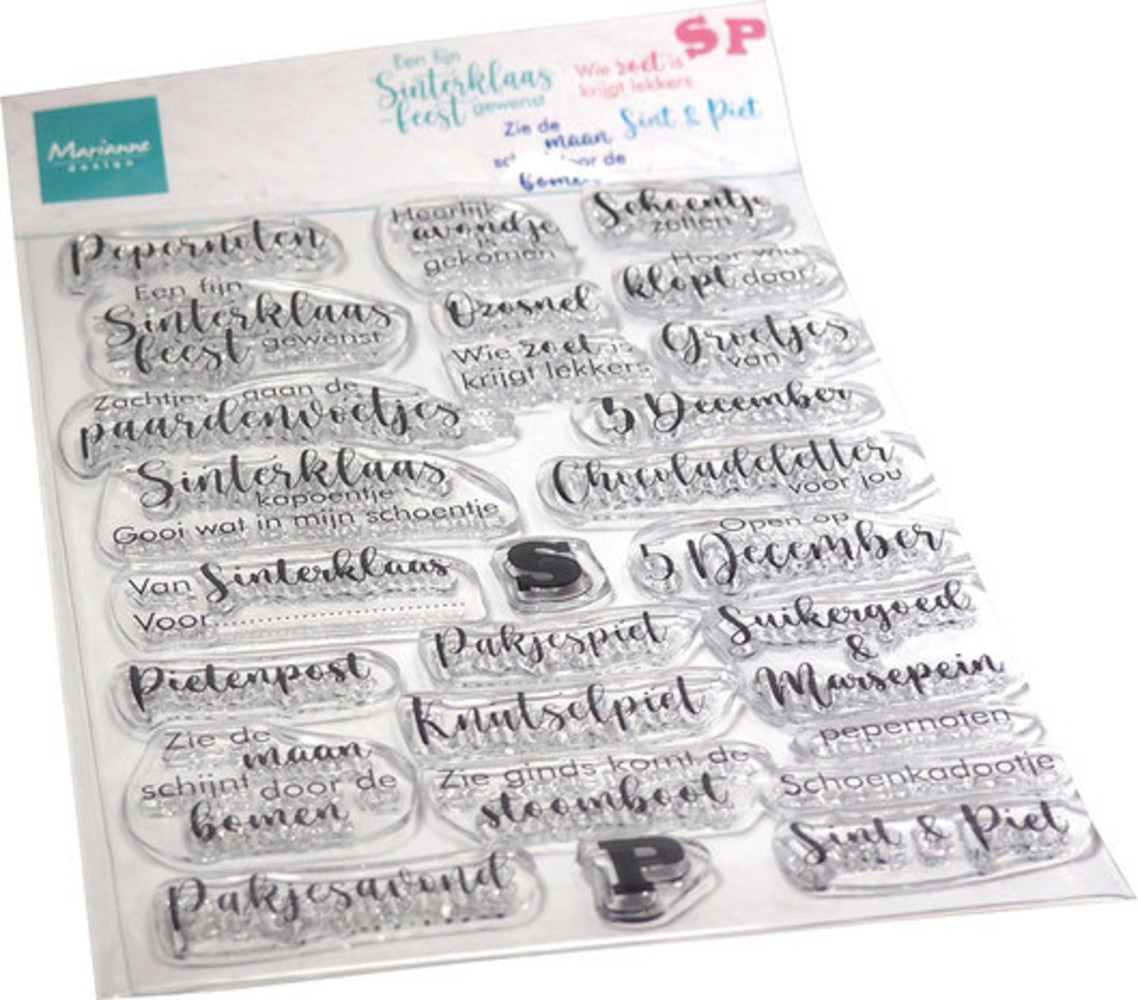 Marianne
design
Een fijn
Sinterklaas
-feest gewenst
S P
Wie zoet is
krijgt lekkers
Sint & Piet
Zie de
maan
door de
bomen
Pepernoten
Heerlijk
avondje
is
gekomen
Schoentje
zetten
Een fijn
Sinterklaas
feest gewenst
Ozosnel
Hoor wie
klopt daar
Wie zoet is
krijgt lekkers
Groetjes
van
Zachtjes gaan de
paardenvoetjes
5 December
Sinterklaas
kapoentje
Gooi wat in mijn schoentje
Chocoladeletter
voor jou
Van Sinterklaas
Voor....................................
S
Open op
5 December
Pakjespiet
Suikergoed
&
Marsepein
Pietenpost
Knutselpiet
pepernoten
Zie de
maan
schijnt door de
bomen
Zie ginds komt de
stoomboot
Schoenkadootje
Sint & Piet
Pakjesavond
P